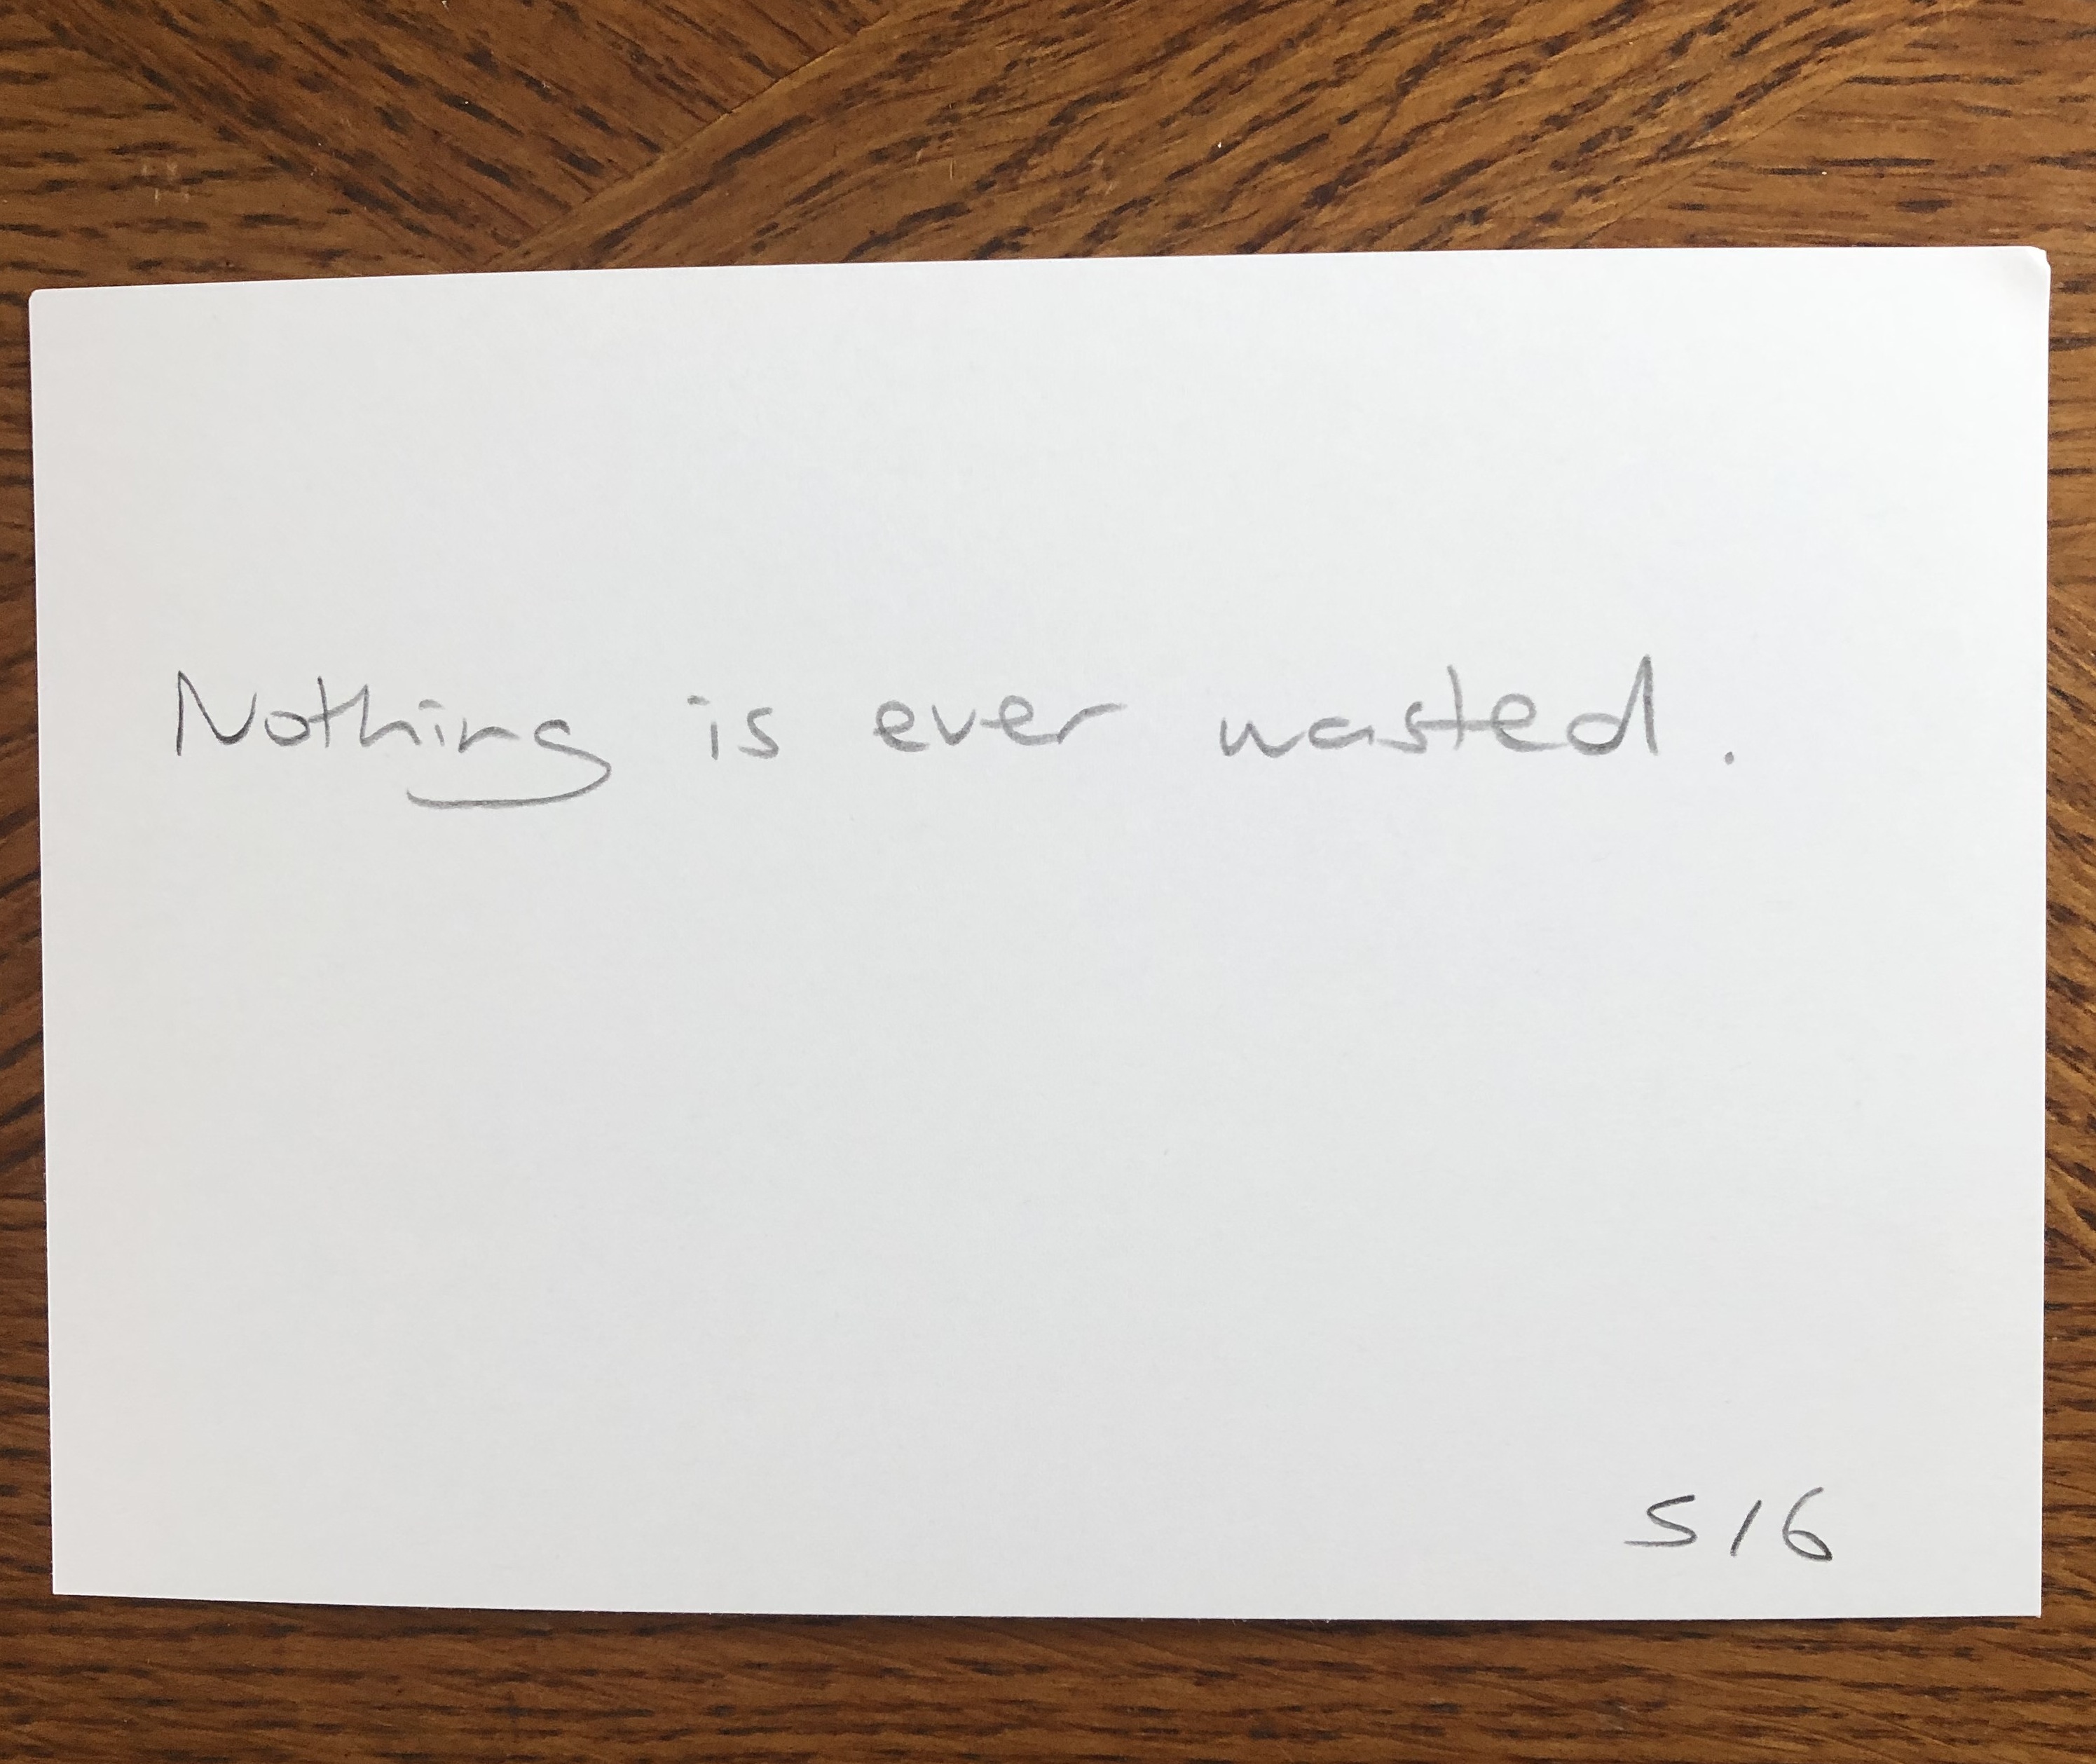 Nothing is ever wasted.
5/6